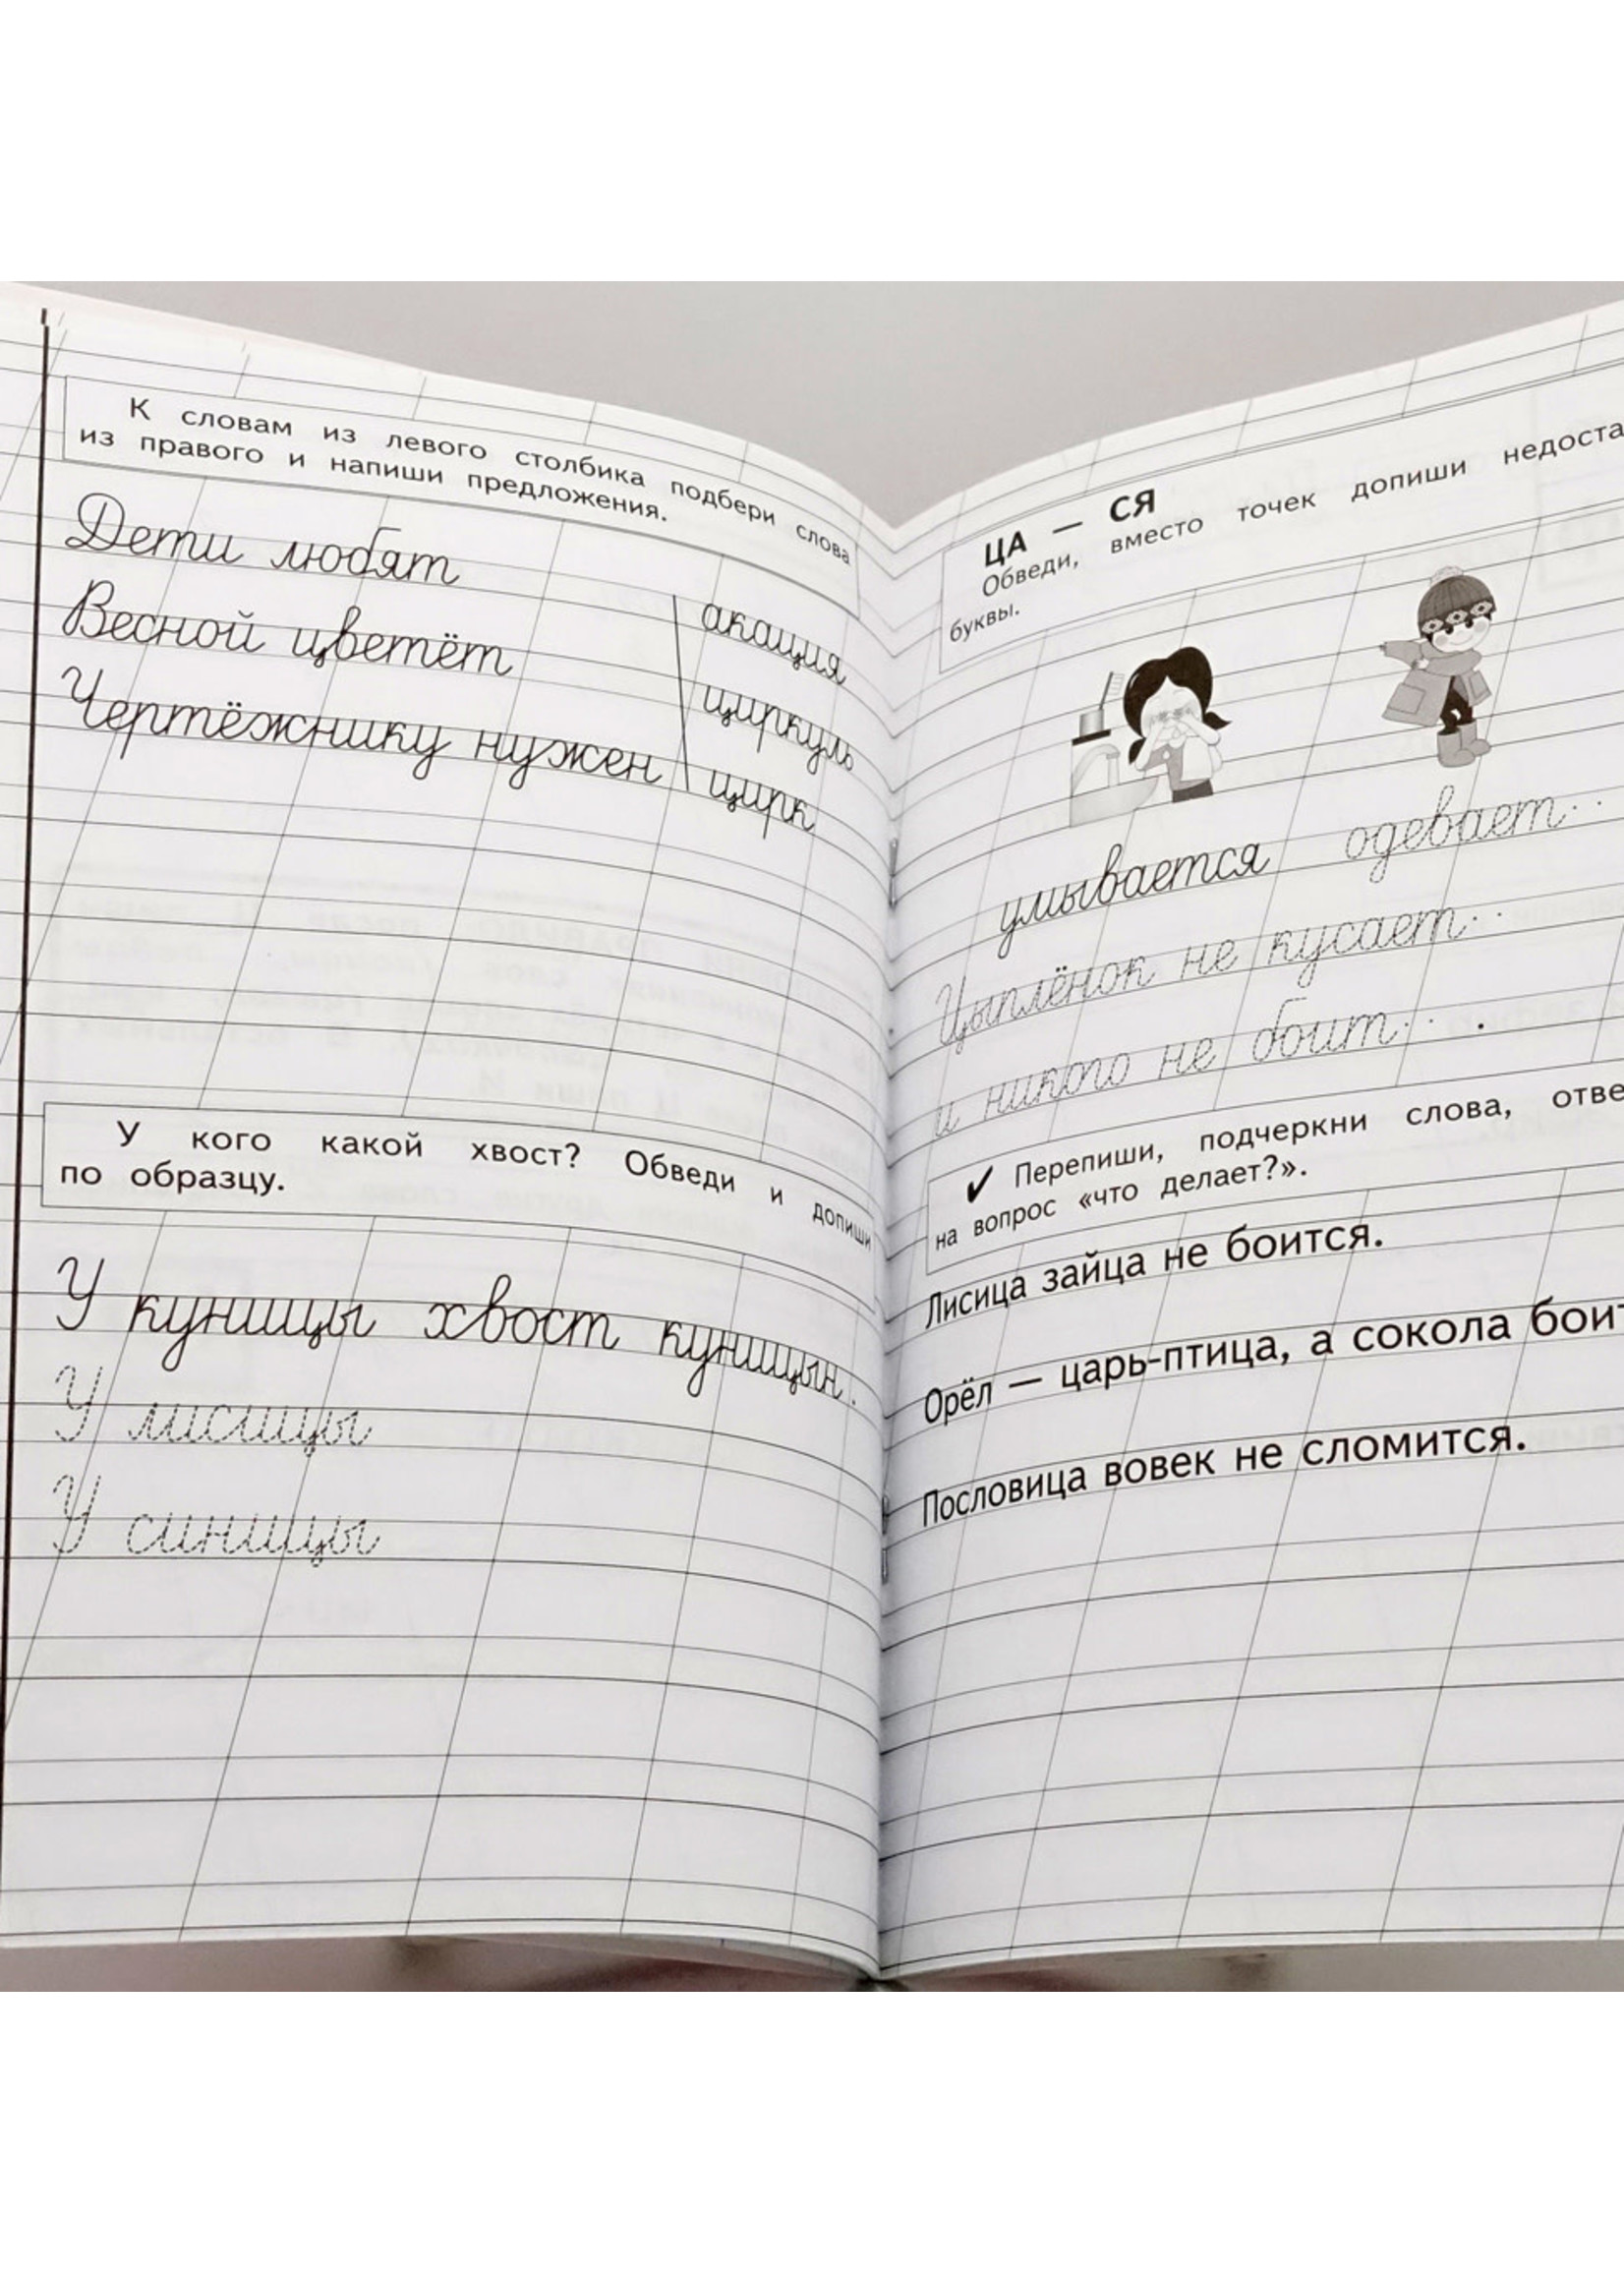 К словам из левого столбика подбери слова
из правого и напиши предложения.
Дети любят
Весной цветёт
Чертёжнику нужен
акация
циркуль
цирк
У кого какой хвост? Обведи и допиши
по образцу.
У куницы хвост куницын.
У лисицы
У синицы
ЦА — СЯ
Обведи, вместо точек допиши недоста
буквы.
умывается одевает..
Цыплёнок не кусает..
и никого не боит.. .
✓ Перепиши, подчеркни слова, отве
на вопрос «что делает?».
Лисица зайца не боится.
Орёл — царь-птица, а сокола боит
Пословица вовек не сломится.